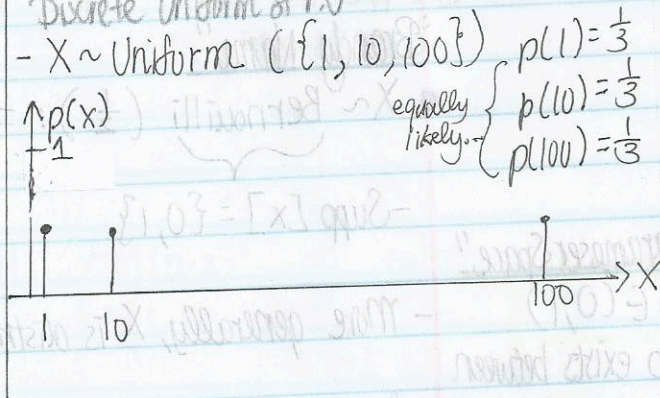 Discrete Uniform of r.v
- X ~ Uniform ({1, 10, 100})
equally likely.
p(1) = 1/3
p(10) = 1/3
p(100) = 1/3
p(x)
1
1 10 100 X